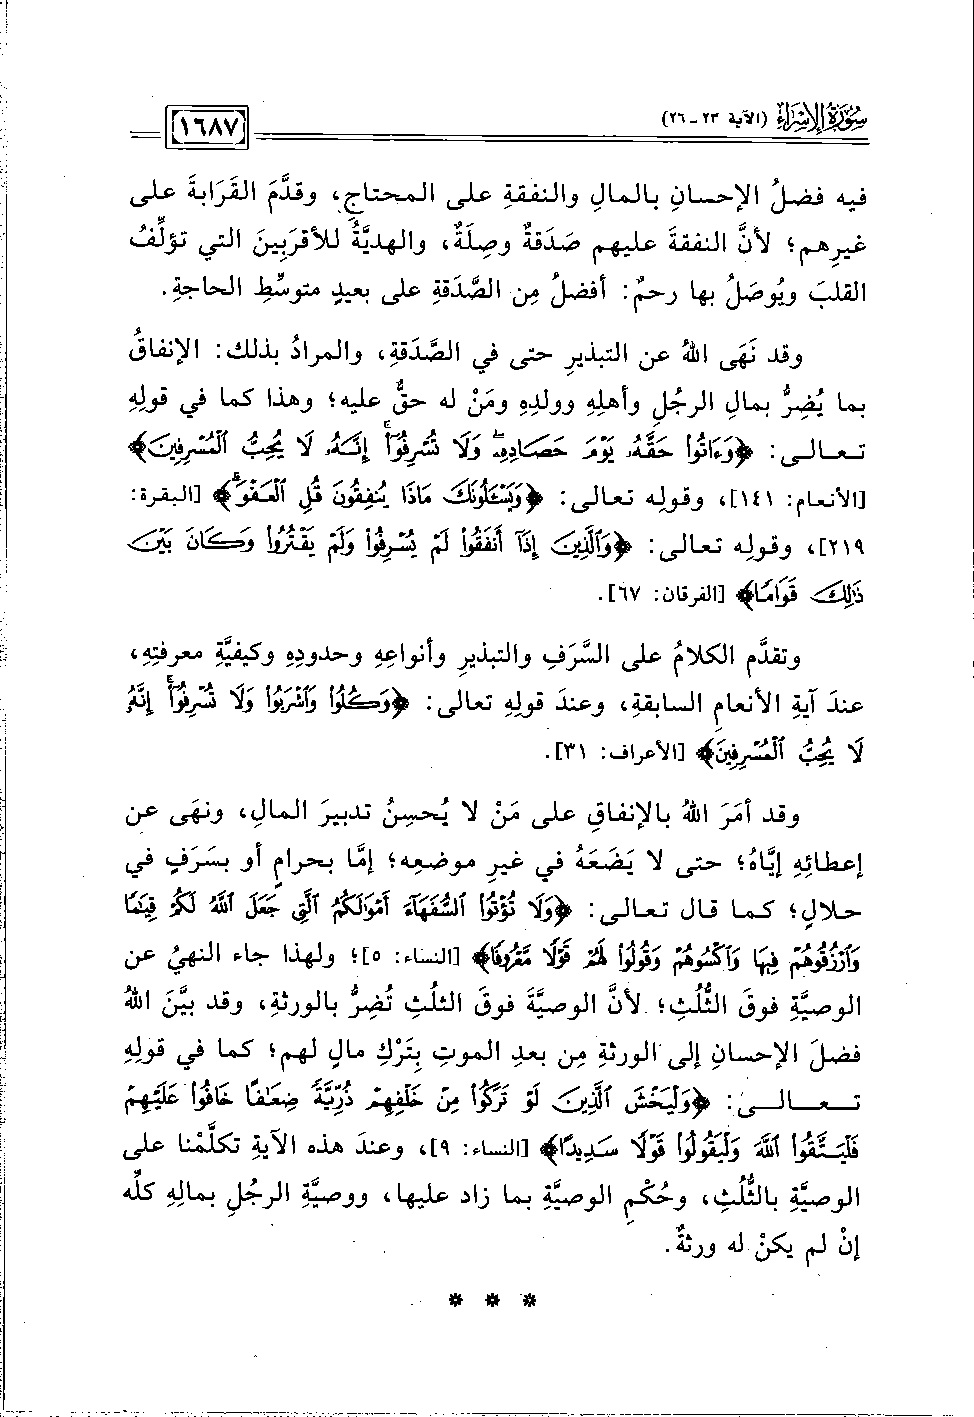 سُورَةُ الإِسْرَاءِ (الآية ٢٣ ـ ٢٦)
١٦٨٧
فيه فضلُ الإحسانِ بالمالِ والنفقةِ على المحتاجِ، وقدَّمَ القَرَابةَ على
غيرِهم؛ لأنَّ النفقةَ عليهم صَدَقةٌ وصِلَةٌ، والهديَّةُ للأقرَبِينَ التي تؤلِّفُ
القلبَ ويُوصَلُ بها رحمٌ: أفضلُ مِن الصَّدَقةِ على بعيدٍ متوسِّطِ الحاجةِ.
وقد نَهَى اللهُ عن التبذيرِ حتى في الصَّدَقةِ، والمرادُ بذلك: الإنفاقُ
بما يُضِرُّ بمالِ الرجُلِ وأهلِهِ وولدِهِ ومَنْ له حقٌّ عليه؛ وهذا كما في قولِهِ
تعالى: ﴿وَءَاتُوا۟ حَقَّهُۥ يَوْمَ حَصَادِهِۦۖ وَلَا تُسْرِفُوٓا۟ۚ إِنَّهُۥ لَا يُحِبُّ ٱلْمُسْرِفِينَ﴾
[الأنعام: ١٤١]، وقولِه تعالى: ﴿وَيَسْـَٔلُونَكَ مَاذَا يُنفِقُونَ قُلِ ٱلْعَفْوَۗ﴾ [البقرة:
٢١٩]، وقولِه تعالى: ﴿وَٱلَّذِينَ إِذَآ أَنفَقُوا۟ لَمْ يُسْرِفُوا۟ وَلَمْ يَقْتُرُوا۟ وَكَانَ بَيْنَ
ذَٰلِكَ قَوَامًا﴾ [الفرقان: ٦٧].
وتقدَّم الكلامُ على السَّرَفِ والتبذيرِ وأنواعِهِ وحدودِهِ وكيفيَّةِ معرفتِهِ،
عندَ آيةِ الأنعامِ السابقةِ، وعندَ قولِهِ تعالى: ﴿وَكُلُوا۟ وَٱشْرَبُوا۟ وَلَا تُسْرِفُوٓا۟ۚ إِنَّهُۥ
لَا يُحِبُّ ٱلْمُسْرِفِينَ﴾ [الأعراف: ٣١].
وقد أمَرَ اللهُ بالإنفاقِ على مَنْ لا يُحسِنُ تدبيرَ المالِ، ونهَى عن
إعطائِهِ إيَّاهُ؛ حتى لا يَضَعَهُ في غيرِ موضعِه؛ إمَّا بحرامٍ أو بسَرَفٍ في
حلالٍ؛ كما قال تعالى: ﴿وَلَا تُؤْتُوا۟ ٱلسُّفَهَآءَ أَمْوَٰلَكُمُ ٱلَّتِى جَعَلَ ٱللَّهُ لَكُمْ قِيَٰمًا
وَٱرْزُقُوهُمْ فِيهَا وَٱكْسُوهُمْ وَقُولُوا۟ لَهُمْ قَوْلًا مَّعْرُوفًا﴾ [النساء: ٥]؛ ولهذا جاء النهيُ عن
الوصيَّةِ فوقَ الثُّلُثِ؛ لأنَّ الوصيَّةَ فوقَ الثلُثِ تُضِرُّ بالورثةِ، وقد بيَّنَ اللهُ
فضلَ الإحسانِ إلى الورثةِ مِن بعدِ الموتِ بِتَرْكِ مالٍ لهم؛ كما في قولِهِ
تعالى: ﴿وَلْيَخْشَ ٱلَّذِينَ لَوْ تَرَكُوا۟ مِنْ خَلْفِهِمْ ذُرِّيَّةً ضِعَٰفًا خَافُوا۟ عَلَيْهِمْ
فَلْيَتَّقُوا۟ ٱللَّهَ وَلْيَقُولُوا۟ قَوْلًا سَدِيدًا﴾ [النساء: ٩]، وعندَ هذه الآيةِ تكلَّمْنا على
الوصيَّةِ بالثُّلُثِ، وحُكْمِ الوصيَّةِ بما زاد عليها، ووصيَّةِ الرجُلِ بمالِهِ كلِّه
إنْ لم يكنْ له ورثةٌ.
* * *